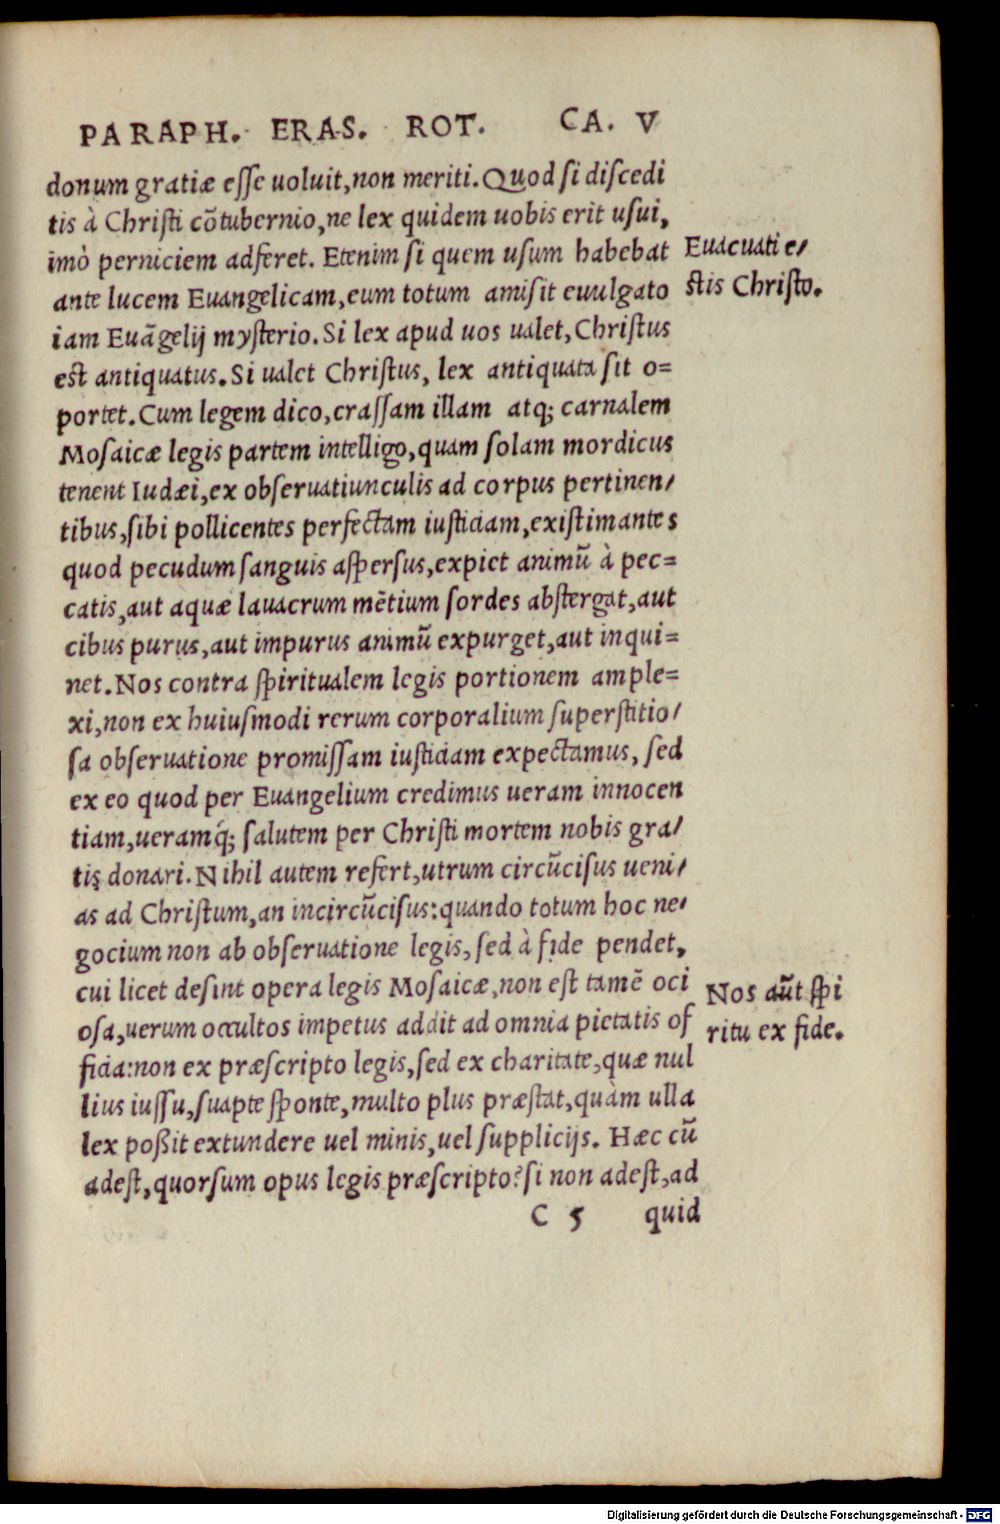 PARAPH. ERAS. ROT. CA. V
donum gratiæ eſſe uoluit, non meriti. Quod ſi diſcedi
tis à Chriſti cõtubernio, ne lex quidem uobis erit uſui,
imò perniciem adferet. Etenim ſi quem uſum habebat
Euacuati e/
ante lucem Euangelicam, eum totum amiſit euulgato
ſtis Chriſto.
iam Euãgelij myſterio. Si lex apud uos ualet, Chriſtus
eſt antiquatus. Si ualet Chriſtus, lex antiquata ſit o=
portet. Cum legem dico, craſſam illam atq; carnalem
Moſaicæ legis partem intelligo, quam ſolam mordicus
tenent Iudæi, ex obſeruatiunculis ad corpus pertinen/
tibus, ſibi pollicentes perfectam iuſticiam, exiſtimantes
quod pecudum ſanguis aſperſus, expiet animũ à pec=
catis, aut aquæ lauacrum mẽtium ſordes abſtergat, aut
cibus purus, aut impurus animũ expurget, aut inqui=
net. Nos contra ſpiritualem legis portionem ample=
xi, non ex huiuſmodi rerum corporalium ſuperſtitio/
ſa obſeruatione promiſſam iuſticiam expectamus, ſed
ex eo quod per Euangelium credimus ueram innocen
tiam, ueramq́; ſalutem per Chriſti mortem nobis gra/
tis donari. Nihil autem refert, utrum circũciſus ueni/
as ad Chriſtum, an incircũciſus: quando totum hoc ne/
gocium non ab obſeruatione legis, ſed à fide pendet,
cui licet deſint opera legis Moſaicæ, non eſt tamẽ oci
Nos aũt ſpi
oſa, uerum occultos impetus addit ad omnia pietatis of
ritu ex fide.
ficia: non ex præſcripto legis, ſed ex charitate, quæ nul
lius iuſſu, ſuapte ſponte, multo plus præſtat, quàm ulla
lex poßit extundere uel minis, uel ſupplicijs. Hæc cũ
adeſt, quorſum opus legis præſcripto? ſi non adeſt, ad
C 5 quid
Digitalisierung gefördert durch die Deutsche Forschungsgemeinschaft - DFG